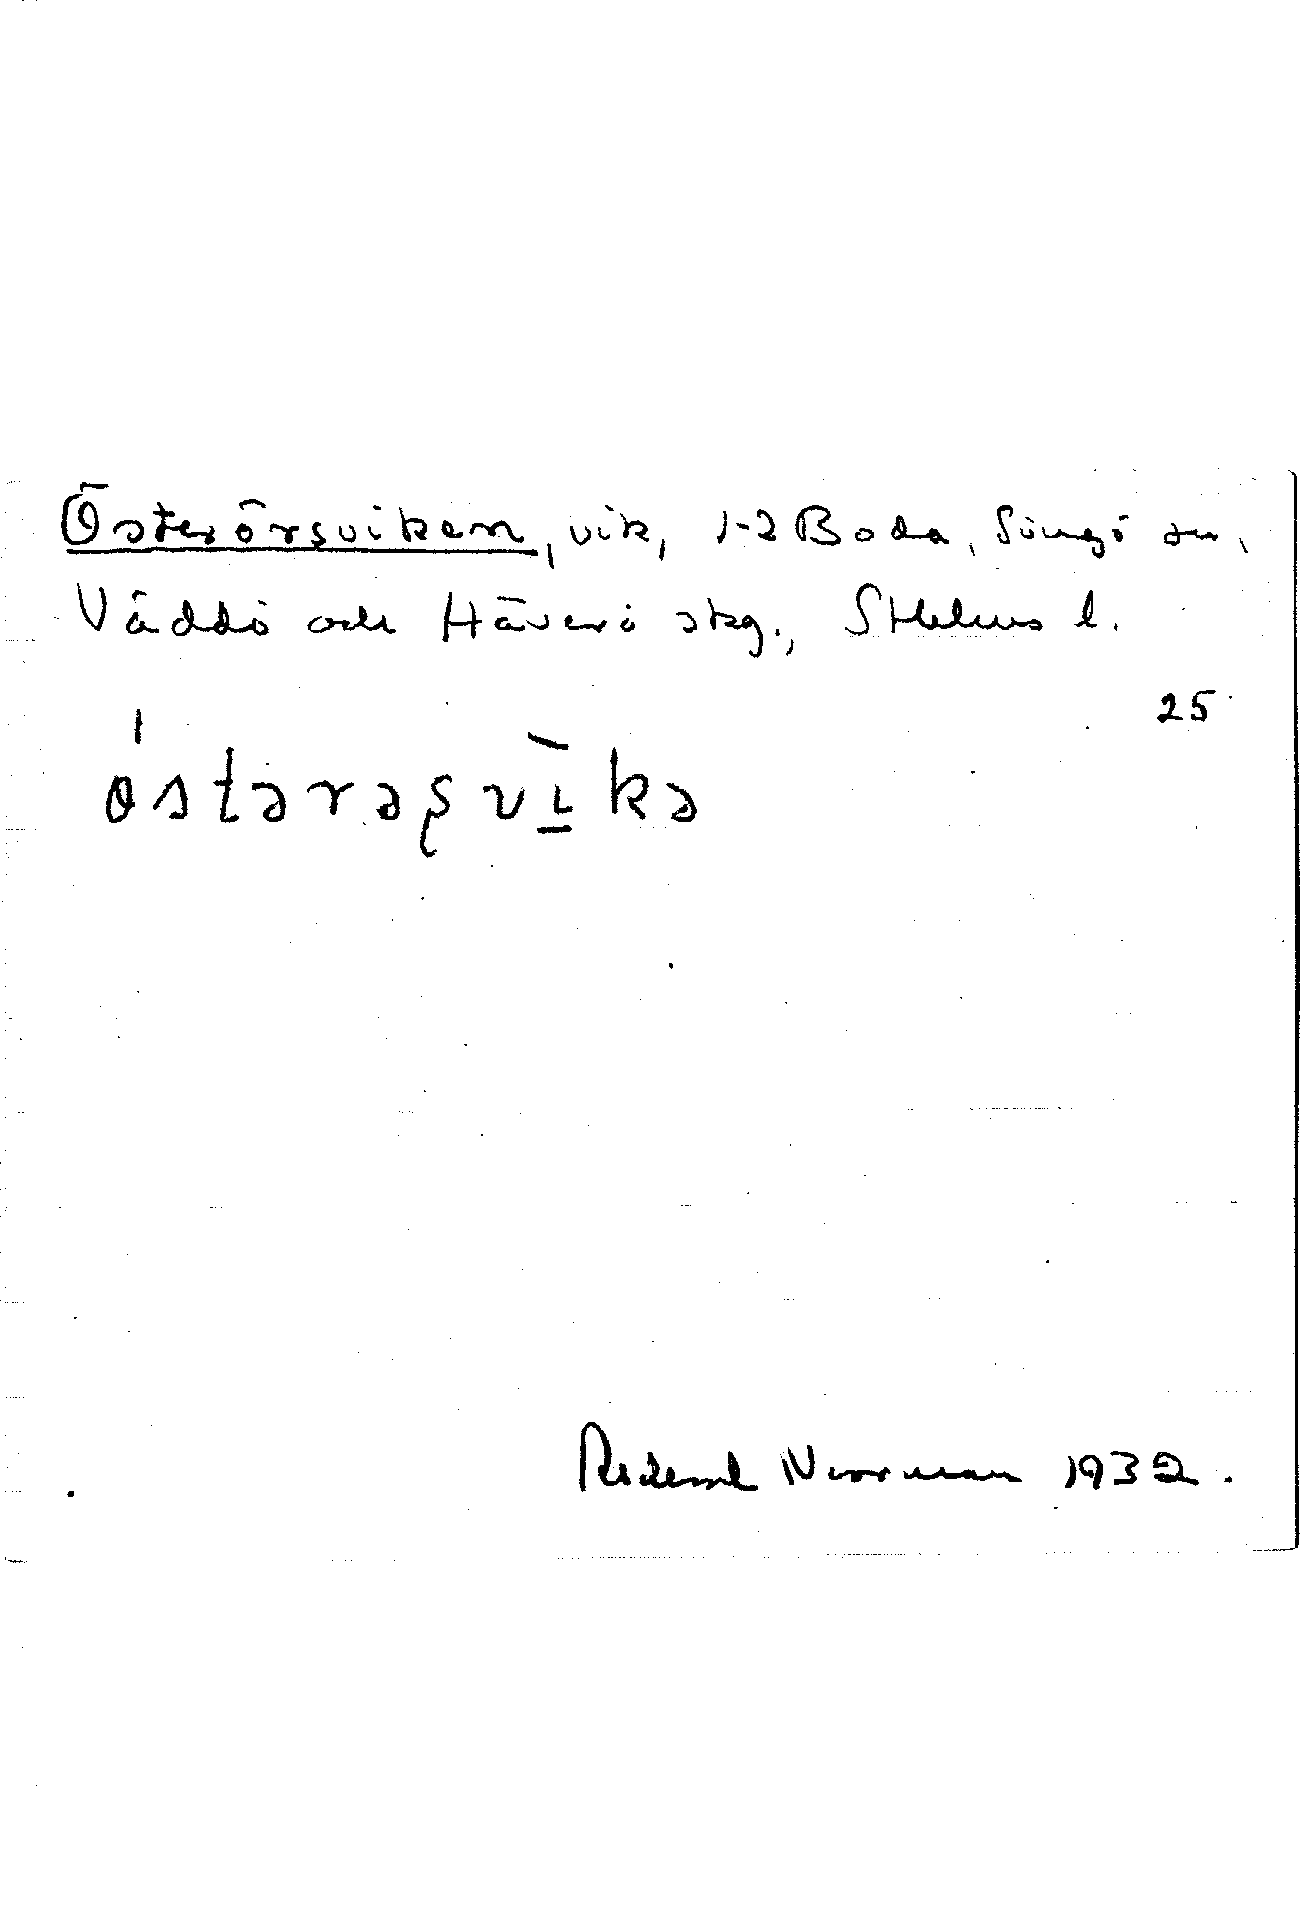 Österörsviken, vik, 1-2 Boda, Singö sn,
Väddö och Häverö skg., Sthlms l.
25
östərəsvikə
Rudolf Norrman 1932.